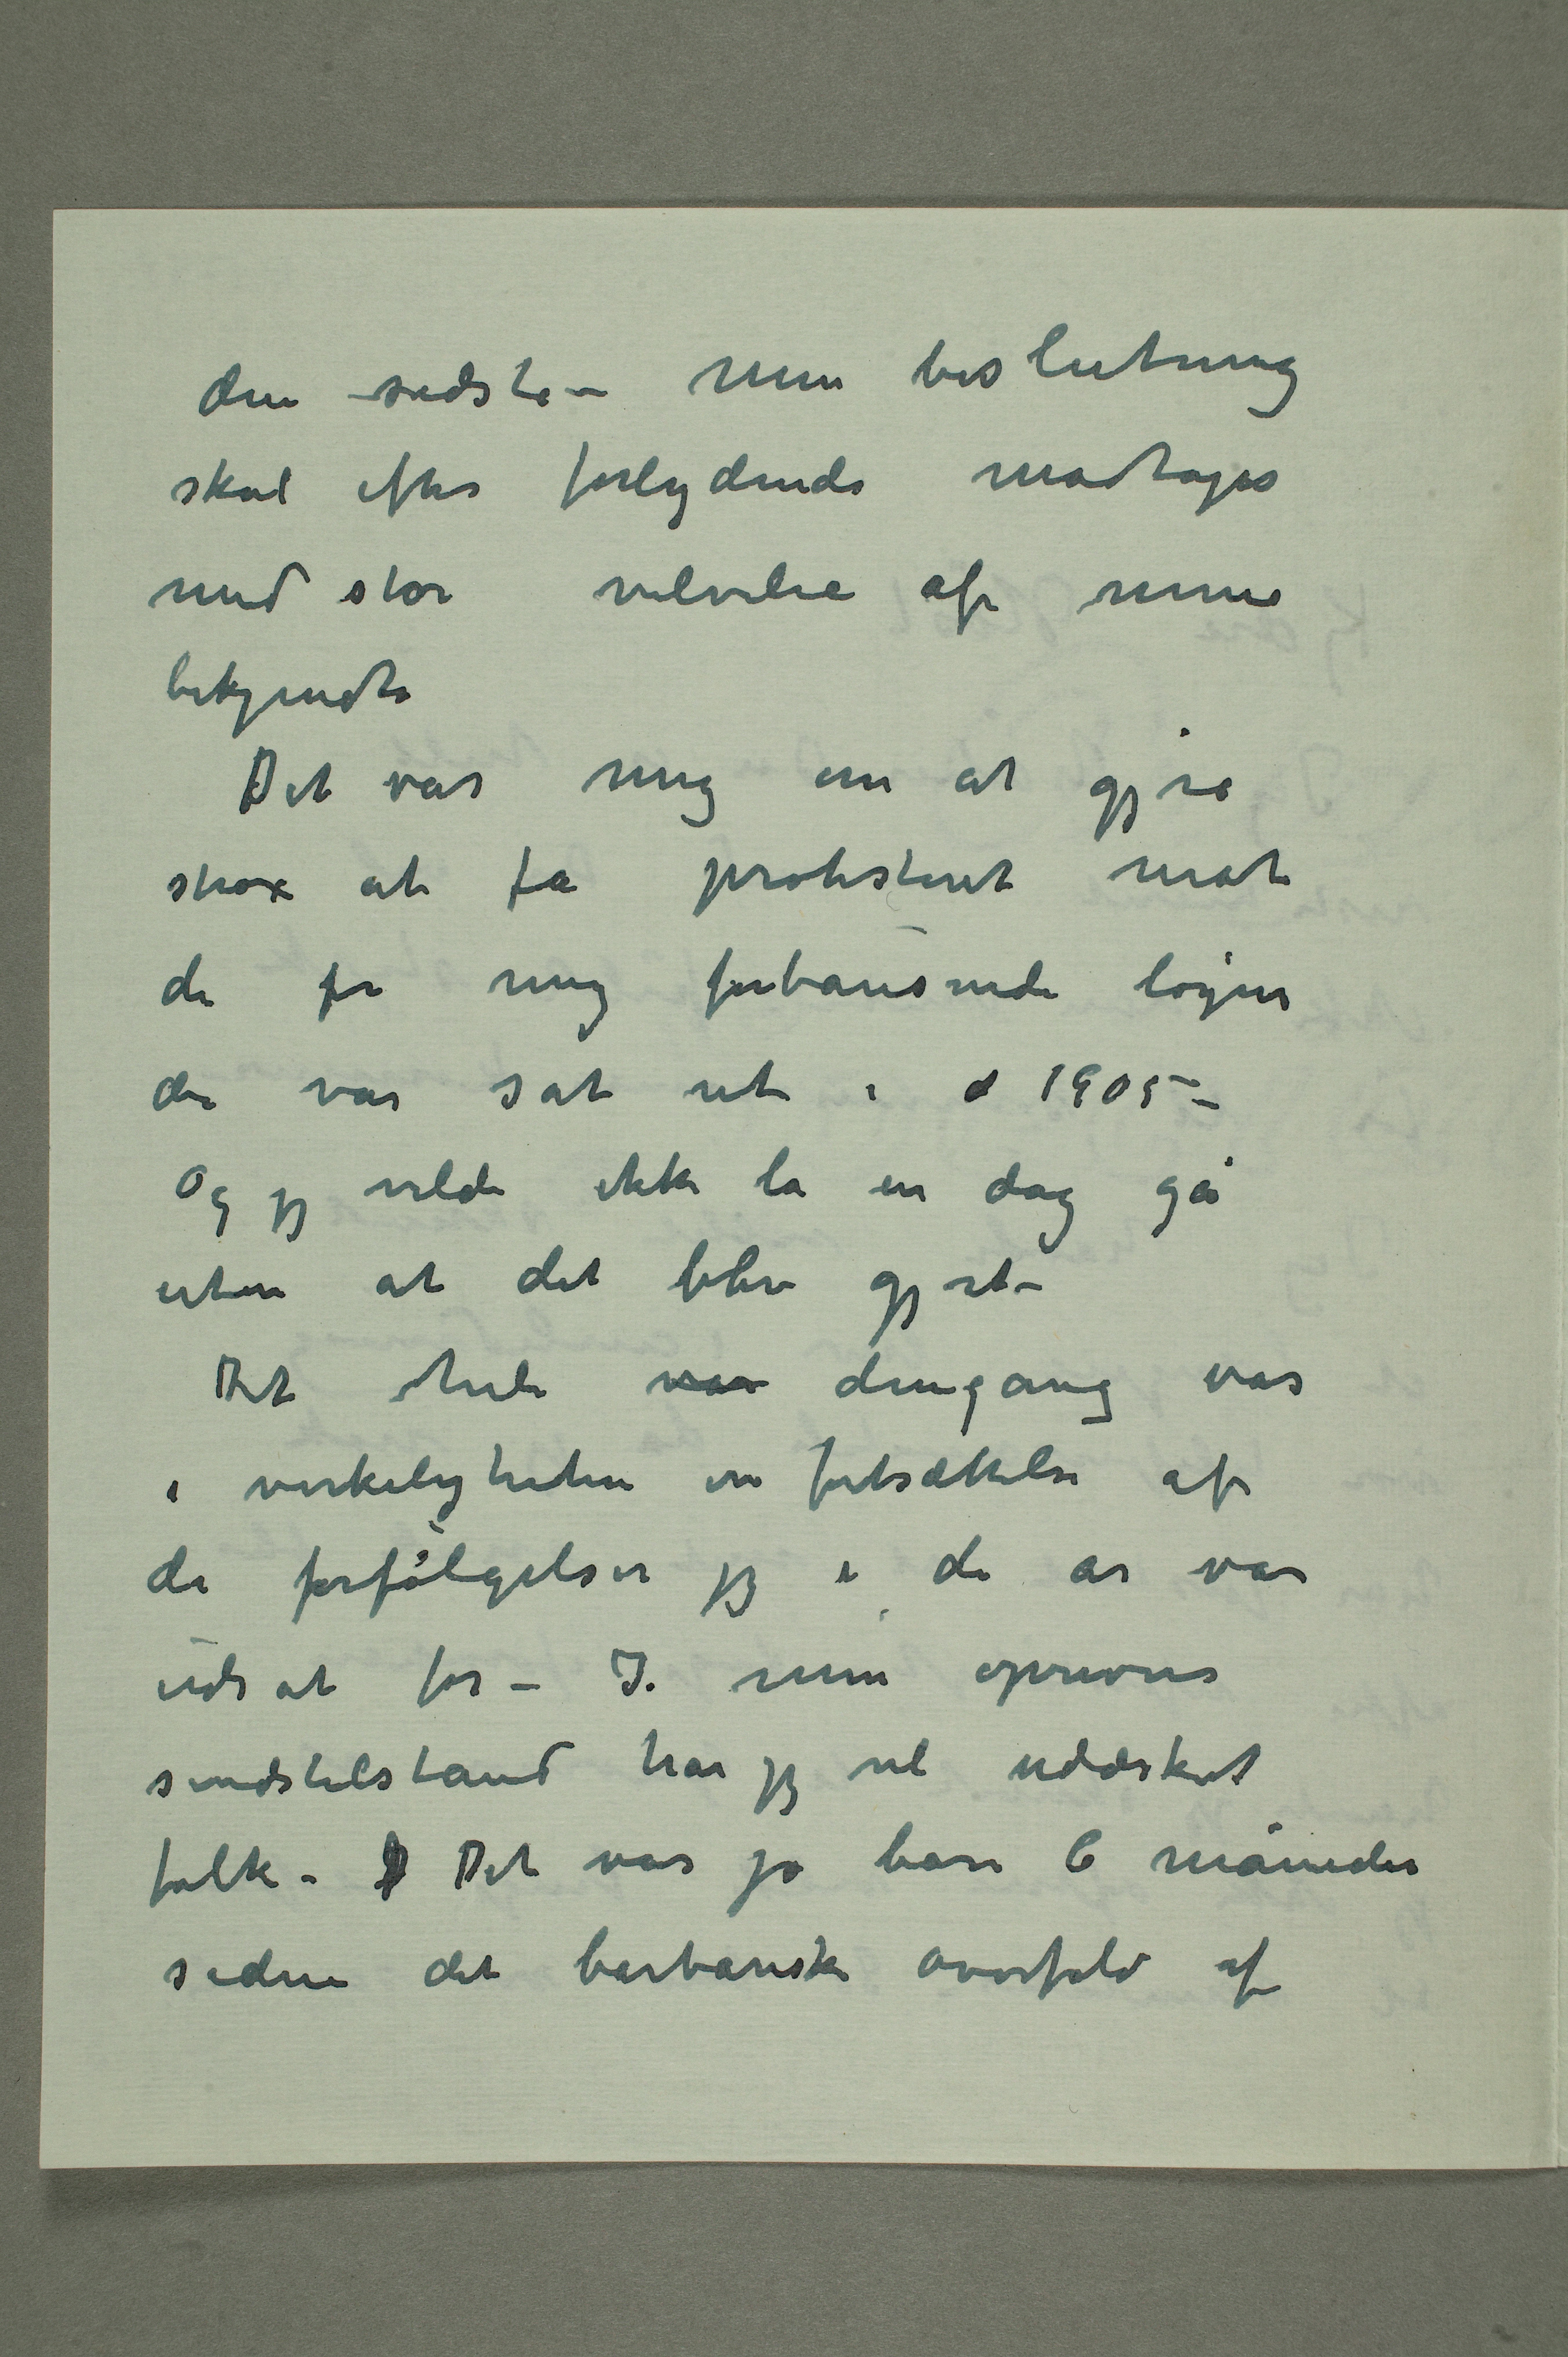 den sidste – Min beslutning
skal efter forlydende modtages
med stor velvilie af mine
bekjendte
Det var mig om at gjøre
strax at få protisteret mot
de for mig forbausende løgne
der var sat ut i 1905 –
Og jeg vilde ikke la en dag gå
uten at det blev gjort –
Det hele var dengang var
i virkeligheten en fortsættelse af
de forfølgelser jeg i de år var
udsat for – I min oprevne
sindstilstand har jeg vel uddsket
folk – Det var jo bare 6 måneder
siden det barbariske overfald af